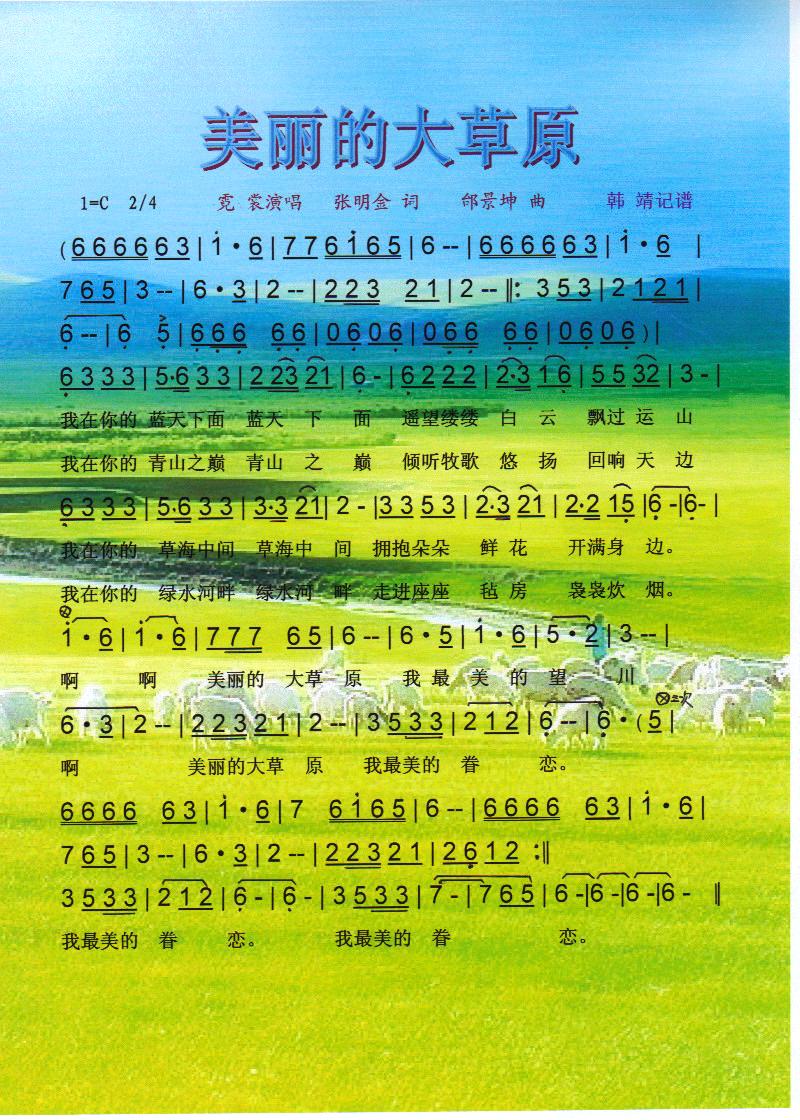 美丽的大草原
1=C 2/4 霓 裳演唱 张明金 词 邰景坤 曲 韩 靖记谱
( 6 6 6 6 6 3 | 1 · 6 | 7 7 6 1 6 5 | 6 -- | 6 6 6 6 6 3 | 1 · 6 |
7 6 5 | 3 -- | 6 · 3 | 2 -- | 2 2 3 2 1 | 2 -- ‖: 3 5 3 | 2 1 2 1 |
6 -- | 6 5 | 6 6 6 6 6 | 0 6 0 6 | 0 6 6 6 6 | 0 6 0 6 ) |
6 3 3 3 | 5·6 3 3 | 2 23 21 | 6 - | 6 2 2 2 | 2·3 1 6 | 5 5 32 | 3 - |
我在你的 蓝天下面 蓝天 下 面 遥望缕缕 白 云 飘过 运 山
我在你的 青山之巅 青山 之 巅 倾听牧歌 悠 扬 回响 天 边
6 3 3 3 | 5·6 3 3 | 3·3 21 | 2 - | 3 3 5 3 | 2·3 21 | 2·2 15 | 6 - | 6 - |
我在你的 草海中间 草海中 间 拥抱朵朵 鲜 花 开满身 边。
我在你的 绿水河畔 绿水河 畔 走进座座 毡 房 袅袅炊 烟。
1 · 6 | 1 · 6 | 7 7 7 6 5 | 6 -- | 6 · 5 | 1 · 6 | 5 · 2 | 3 -- |
啊 啊 美丽的 大草 原 我 最 美 的 望 川
6 · 3 | 2 -- | 2 2 3 2 1 | 2 -- | 3 5 3 3 | 2 1 2 | 6 -- | 6 · ( 5 |
啊 美丽的大草 原 我最美的 眷 恋。
6 6 6 6 6 3 | 1 · 6 | 7 6 1 6 5 | 6 -- | 6 6 6 6 6 3 | 1 · 6 |
7 6 5 | 3 -- | 6 · 3 | 2 -- | 2 2 3 2 1 | 2 6 1 2 :‖
3 5 3 3 | 2 1 2 | 6 - | 6 - | 3 5 3 3 | 7 - | 7 6 5 | 6 - | 6 - | 6 - | 6 - ‖
我最美的 眷 恋。 我最美的 眷 恋。